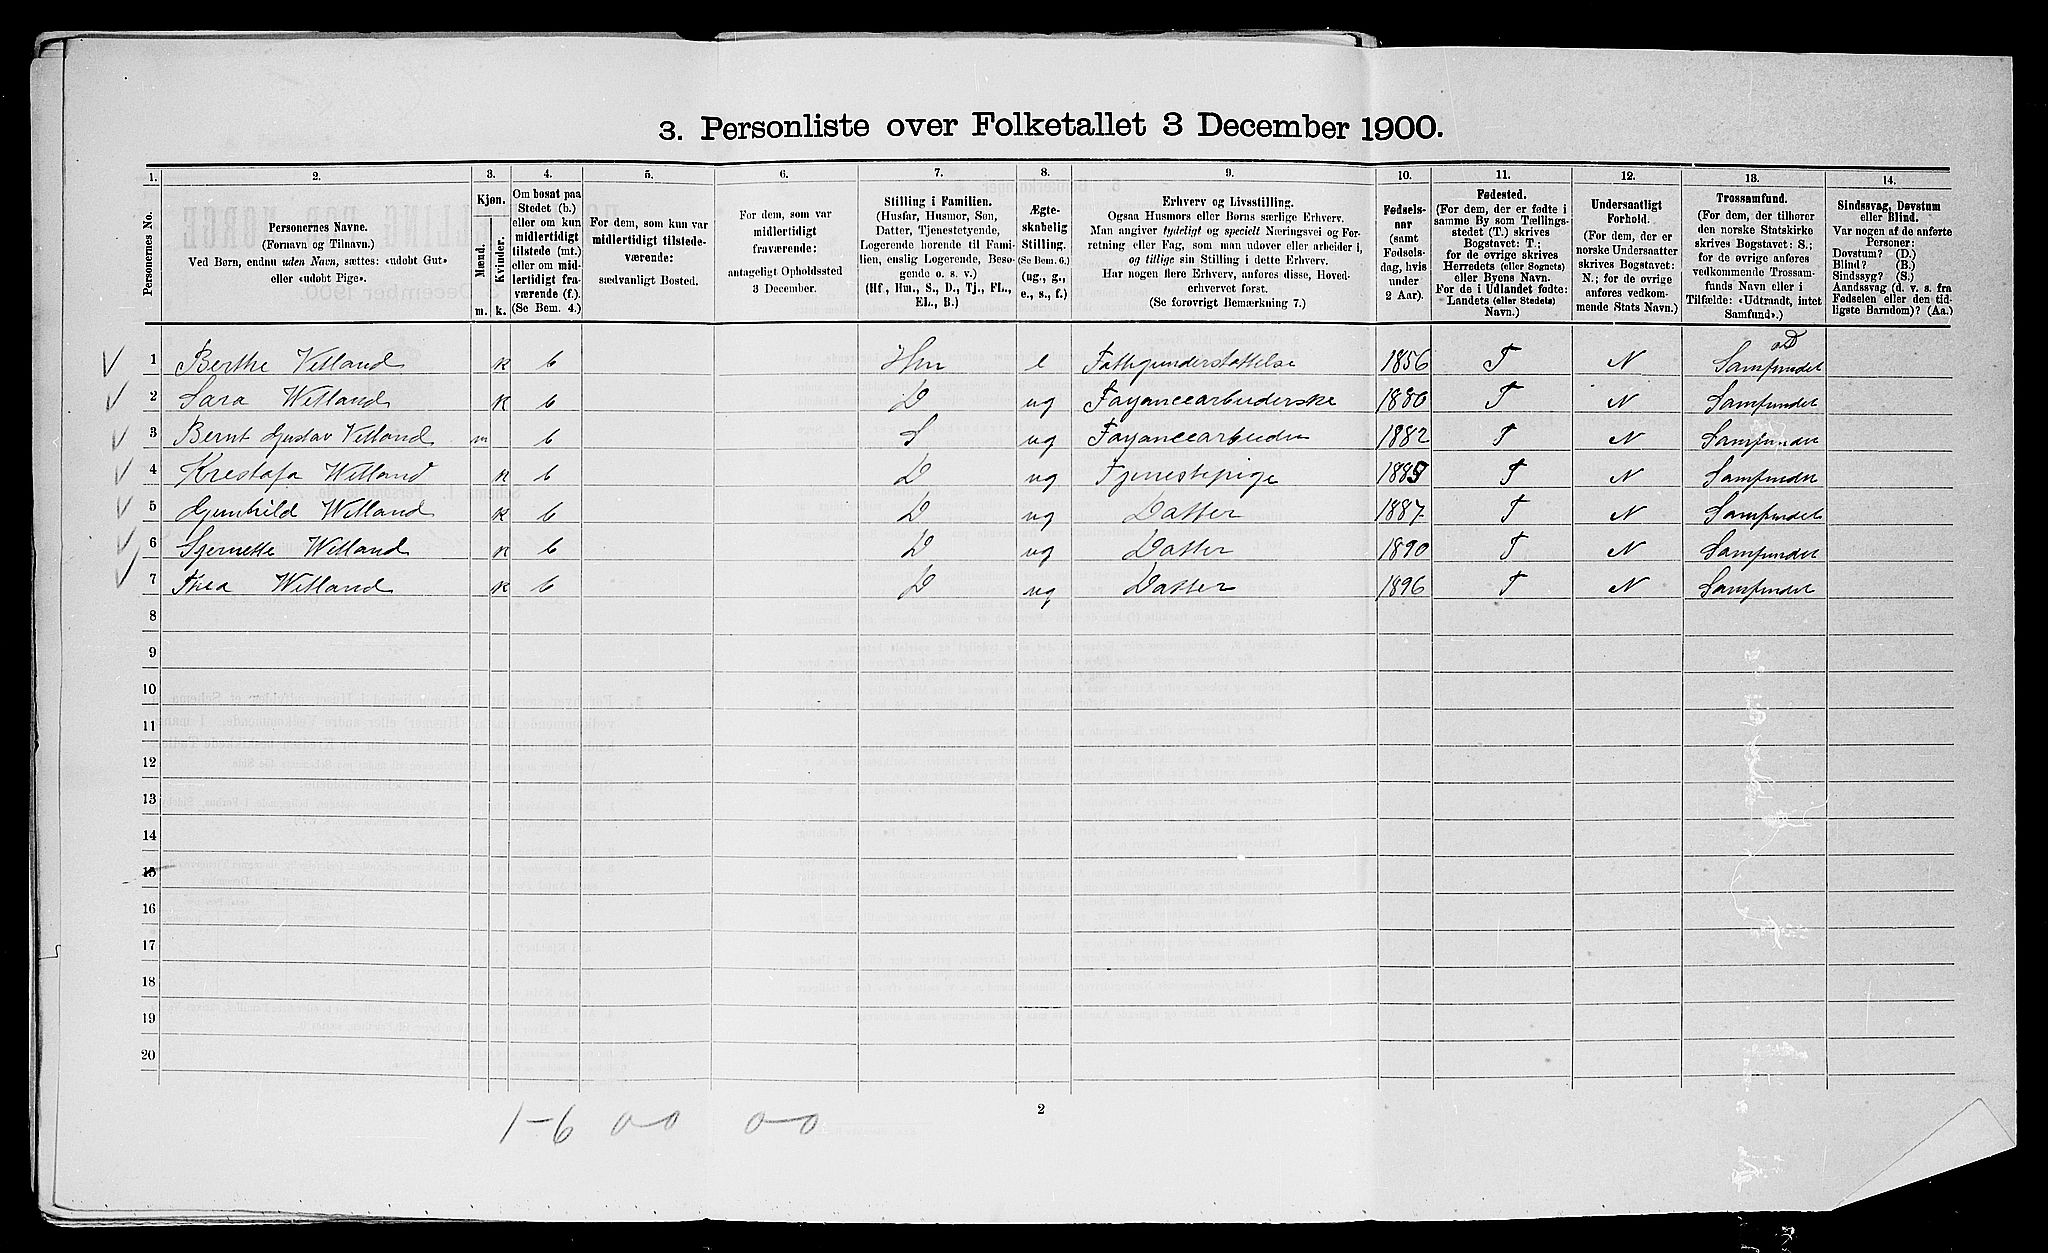 3. Personliste over Folketallet 3 December 1900.
1. 2. 3. 4. 5. 6. 7. 8. 9. 10. 11. 12. 13. 14.
Personernes No.
Personernes Navne.
(Fornavn og Tilnavn.)
Ved Børn, endnu uden Navn, sættes: «udøbt Gut»
eller «udøbt Pige».
Kjøn.
Mænd. Kvinder.
m. k.
Om bosat paa
Stedet (b.)
eller om kun
midlertidigt
tilstede (mt.)
eller om mid-
lertidigt fra-
værende (f.).
(Se Bem. 4.)
For dem, som kun var
midlertidigt tilstede-
værende:
sædvanligt Bosted.
For dem, som var
midlertidigt
fraværende:
antageligt Opholdssted
3 December.
Stilling i Familien.
(Husfar, Husmor, Søn,
Datter, Tjenestetyende,
Logerende hørende til Fami-
lien, enslig Logerende, Besø-
gende o. s. v.)
(Hf., Hm., S., D., Tj., FL.,
EL., B.)
Ægte-
skabelig
Stilling.
(Se Bem. 6.)
(ug., g.,
e., s., f.)
Erhverv og Livsstilling.
Ogsaa Husmors eller Børns særlige Erhverv.
Man angiver tydeligt og specielt Næringsvei og For-
retning eller Fag, som man udøver eller arbeider i,
og tillige sin Stilling i dette Erhverv.
Har nogen flere Erhverv, anføres disse, Hoved-
erhvervet først.
(Se forøvrigt Bemærkning 7.)
Fødsels-
aar
(samt
Fødsels-
dag, hvis
under
2 Aar).
Fødested.
(For dem, der er fødte i
samme By som Tællings-
stedet (T.) skrives
Bogstavet: T.;
for de øvrige skrives
Herredets (eller Sognets)
eller Byens Navn.
For de i Udlandet fødte:
Landets (eller Stedets)
Navn.)
Undersaatligt
Forhold.
(For dem, der er
norske Undersaatter
skrives Bogstavet:
N.; for de øvrige
anføres vedkom-
mende Stats Navn.)
Trossamfund.
(For dem, der tilhører
den norske Statskirke
skrives Bogstavet: S.;
for de øvrige anføres
vedkommende Trossam-
funds Navn eller i
Tilfælde: «Udtraadt, intet
Samfund».)
Sindssvag, Døvstum
eller Blind.
Var nogen af de anførte
Personer:
Døvstum? (D.)
Blind? (B.)
Sindssyg? (S.)
Aandssvag (d. v. s. fra
Fødselen eller den tid-
ligste Barndom)? (Aa.)
1 Berthe Vetland k b Hm e Fattigunderstøttelse 1856 T N Samfundet
2 Sara Wetland k b D ug Fayancearbuderske 1880 T N Samfundet
3 Bernt Gustav Vetland m b S ug Fayancearbuder 1882 T N Samfundet
4 Krestofa Wetland k b D ug Tjenestepige 1885 T N Samfundet
5 Gunhild Wetland k b D ug Datter 1887 T N Samfundet
6 Wetland k b D ug Datter 1890 T N Samfundet
7 Thea Wetland k b D ug Datter 1896 T N Samfundet
8
9
10
11
12
13
14
15
16
17
18
19
20
2
1-6 0-0 0-0